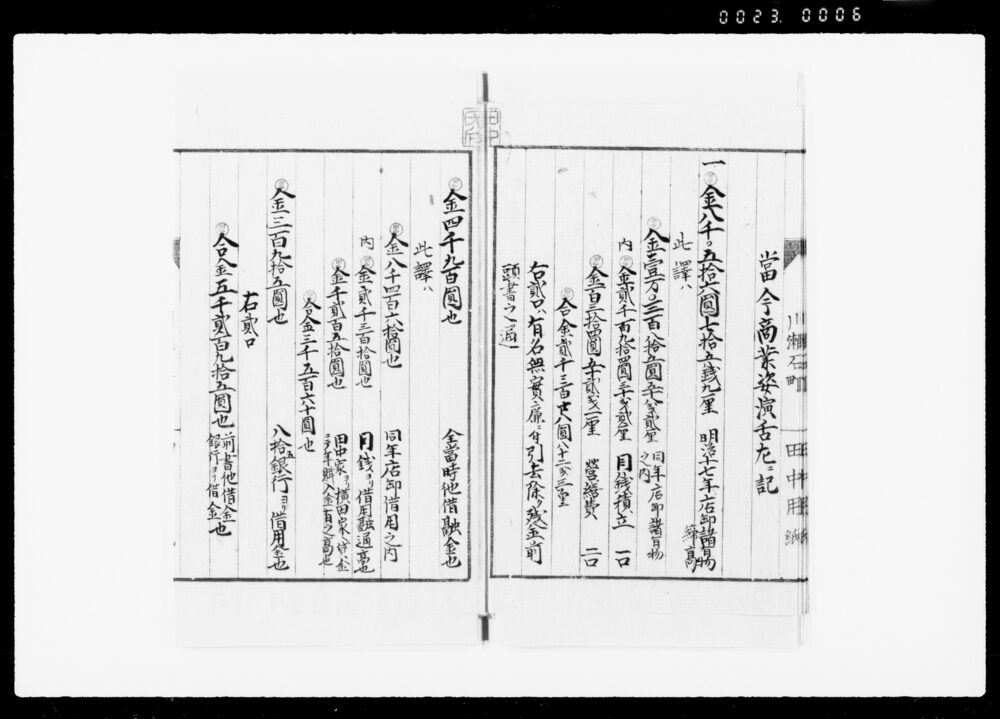 0023.0006
當今商業姿演舌左ニ記
一金八千〇五拾六圓七拾五銭九厘 明治十七年店卸諸貨物
締高
此譯ハ
金壹万〇三百拾五圓
同年店卸諸貨物
之内
内 金貳千百九拾四圓三十六銭貳厘 月銭積立 一口
金百三拾四圓五十貳銭一厘 營繕費 二口
合金貳千三百廿八圓八十二銭三厘
右貳口ハ有名無實之廉ニ付引去除ク残金前
頭書之通
川瀬石町
田中用紙
田中氏印
金四千九百圓也 全當時他借融金也
此譯ハ
金八千四百六拾圓也 同年店卸借用之内
内 金貳千三百拾圓也 月銭ヨリ借用融通高也
金千貳百五拾圓也 田中家ヨリ横田家へ貸金
合金三千五百六十圓也
金三百九拾五圓也 八拾五銀行ヨリ借用金也
右貳口
合金五千貳百九拾五圓也 前書他借金
銀行ヨリ借金也